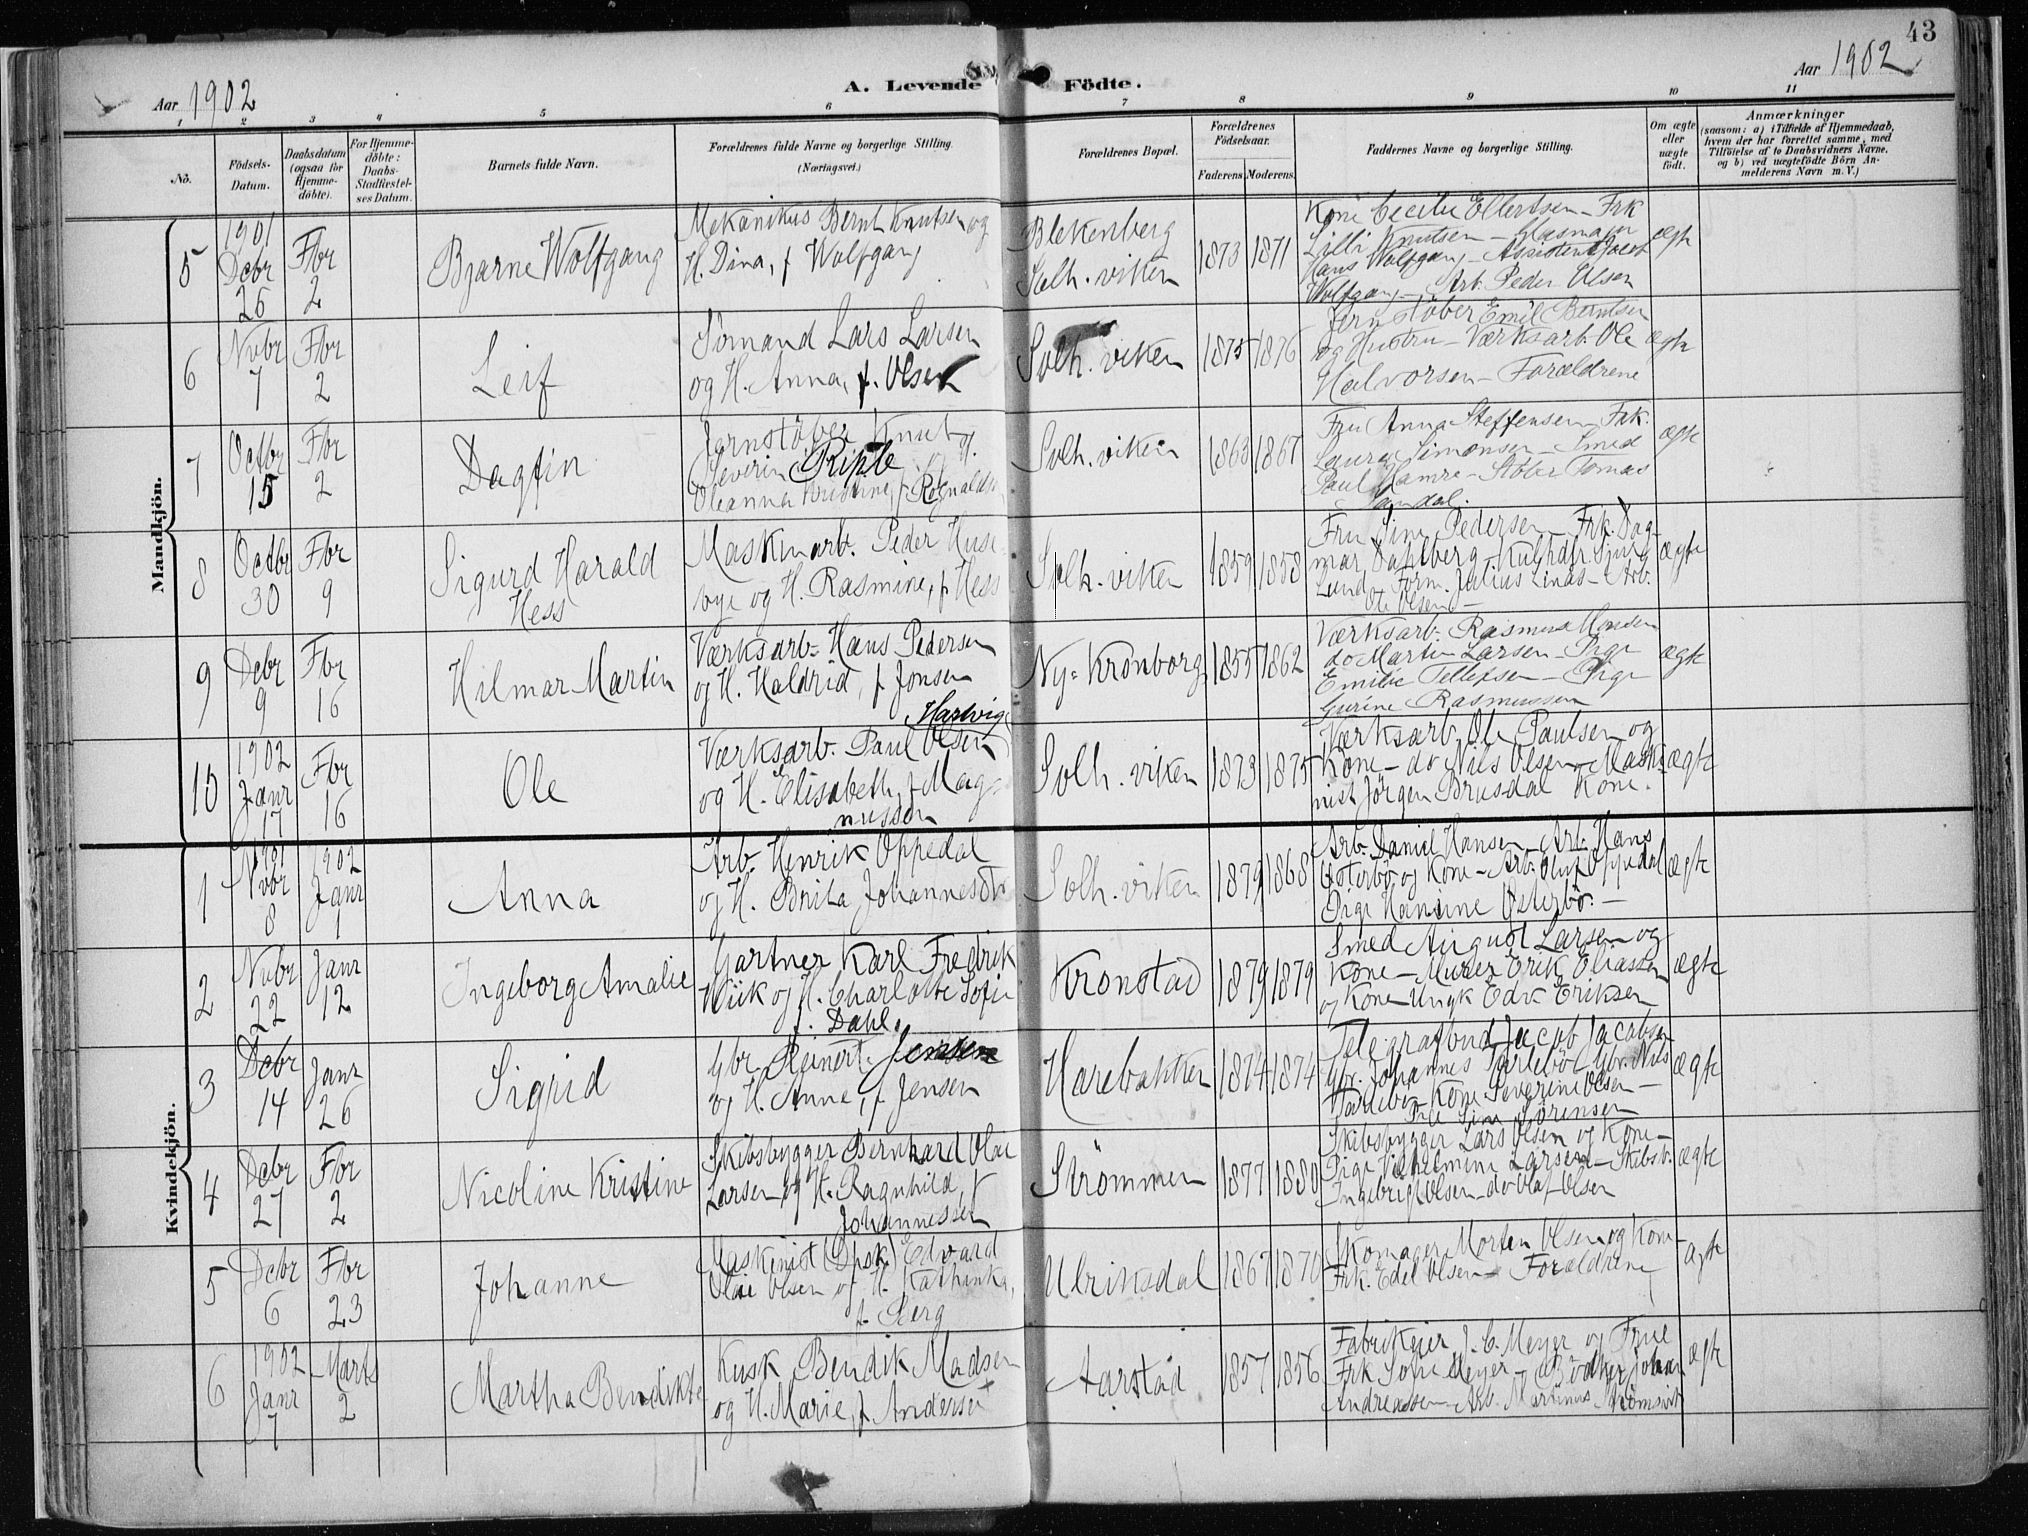 43
Aar 1902
A. Levende Födte.
Aar 1902
1 2 3 4 5 6 7 8 9 10 11
No.
Födsels-Datum.
Daabsdatum (ogsaa for Hjemmedöbte).
For Hjemmedöbte: Daabs-Stadfæstelses Datum.
Barnets fulde Navn.
Forældrenes fulde Navne og borgerlige Stilling. (Næringsvei.)
Forældrenes Bopæl.
Forældrenes Födselsaar.
Faderens. Moderens.
Faddernes Navne og borgerlige Stilling.
Om ægte eller uægte födt.
Anmærkninger
(saasom: a) i Tilfælde af Hjemmedaab, hvem der har forrettet samme, med Tilföielse af to Daabsvidners Navne, og b) ved uægtefödte Börn Anmelderens Navn m. V.)
Mandkjön.
5
1901 Debr 25
Fbr 2
Bjarne Wolfgang
Mekanikus Bernt Knutsen og
H. Dina, f. Wolfgang
Blekenberg
Solh. viken
1873 1871
Kone Cecilie Ellertsen - Frk
Lilli Knutsen -
Hans Wolfgang - Assistent Jacob
Wolfgang - Arb. Peder Olsen
ægte
6
Nvbr 7
Fbr 2
Leif
Sömand Lars Larsen
og H. Anna, f. Olsen
Solh. viken
1875 1876
Jernstöber Emil Berntsen
og Hustru - Værksarb. Ole
Halvorsen - Forældrene
ægte
7
Octbr 15
Fbr 2
Dagfin
Jernstöber Knut
Severin Riple og H.
Oleanna Kristine, f. Rognaldsen
Solh. viken
1863 1867
Fru Anna Steffensen - Frk.
Laura Simonsen - Smed
Paul Hamre - Stöber Tomas
ægte
8
Octbr 30
Fbr 9
Sigurd Harald
Hess
Maskinarb. Peder Huse-
bye og H. Rasmine, f. Hess
Solh. viken
1859 1858
Fru Sine Pedersen - Frk. Dag-
mar Dahlberg -
Lund - Form. Julius Linas - Arb.
Ole Olsen -
ægte
9
Debr 9
Fbr 16
Hilmar Martin
Værksarb. Hans Pedersen
og H. Haldrid, f. Jonsen
Ny-Kronborg
1855 1862
Værksarb. Rasmus Monsen
do Martin Larsen - Pige
Emilie Tellefsen - Pige
Gurine Rasmussen
ægte
10
1902 Janr 17
Fbr 16
Ole
Hartvig
Værksarb. Paul Olsen
og H. Elisabeth, f. Mag-
nussen
Solh. viken
1873 1875
Værksarb. Ole Paulsen og
Kone - do Nils Olsen - Maski-
nist Jörgen Brusdal Kone.
ægte
Kvindekjön.
1
1901 Nvbr 8
1902 Janr 1
Anna
Arb. Henrik Oppedal
og H. Brita Johannesdtr
Solh. viken
1879 1868
Arb. Daniel Hansen - Arb. Hans
Österbö og Kone - Arb. Oluf Oppedal
Pige Hansine Österbö. -
ægte
2
Nvbr 22
Janr 12
Ingeborg Amalie
Gartner Karl Fredrik
Wiik og H. Charlotte Sofie
f. Dahl.
Kronstad
1879 1879
Smed August Larsen og
Kone - Murer Erik Eliassen
og Kone - Ungk Edv Eriksen
ægte
3
Debr 14
Janr 26
Sigrid
Gbr. Reinert Jensen
og H. Anne, f. Jensen
Harebakken
1874 1874
Telegrafbud Jacob Jacobsen
Gbr. Johannes Tarlebö - Gbr. Nils
Tarlebö - Kone Severine Olsen -
Sine Sörensen
ægte
4
Debr 27
Fbr 2
Nicoline Kristine
Skibsbygger Bernhard Olai
Larsen og H. Ragnhild, f.
Johannessen
Strömmen
1877 1880
Skibsbygger Lars Olsen og Kone -
Pige Vilhelmine Larsen - Skibsb.
Ingebrigt Olsen - do Olaf Olsen
ægte
5
Debr 6
Fbr 23
Johanne
Maskinist (Dpsk.) Edvard
Olai Olsen og H. Kathinka,
f. Berg
Ulriksdal
1867 1870
Skomager Morten Olsen og Kone
Frk. Edel Olsen - Forældrene
ægte
6
1902 Janr 7
Marts 2
Martha Bendikte
Kusk Bendik Madsen
og H. Marie, f. Andersen
Aarstad
1857 1856
Fabrikeier J. C. Meyer og Frue
Frk Sofie Meyer - Bödker Johan
Andreassen - Arb. Martinus
ægte